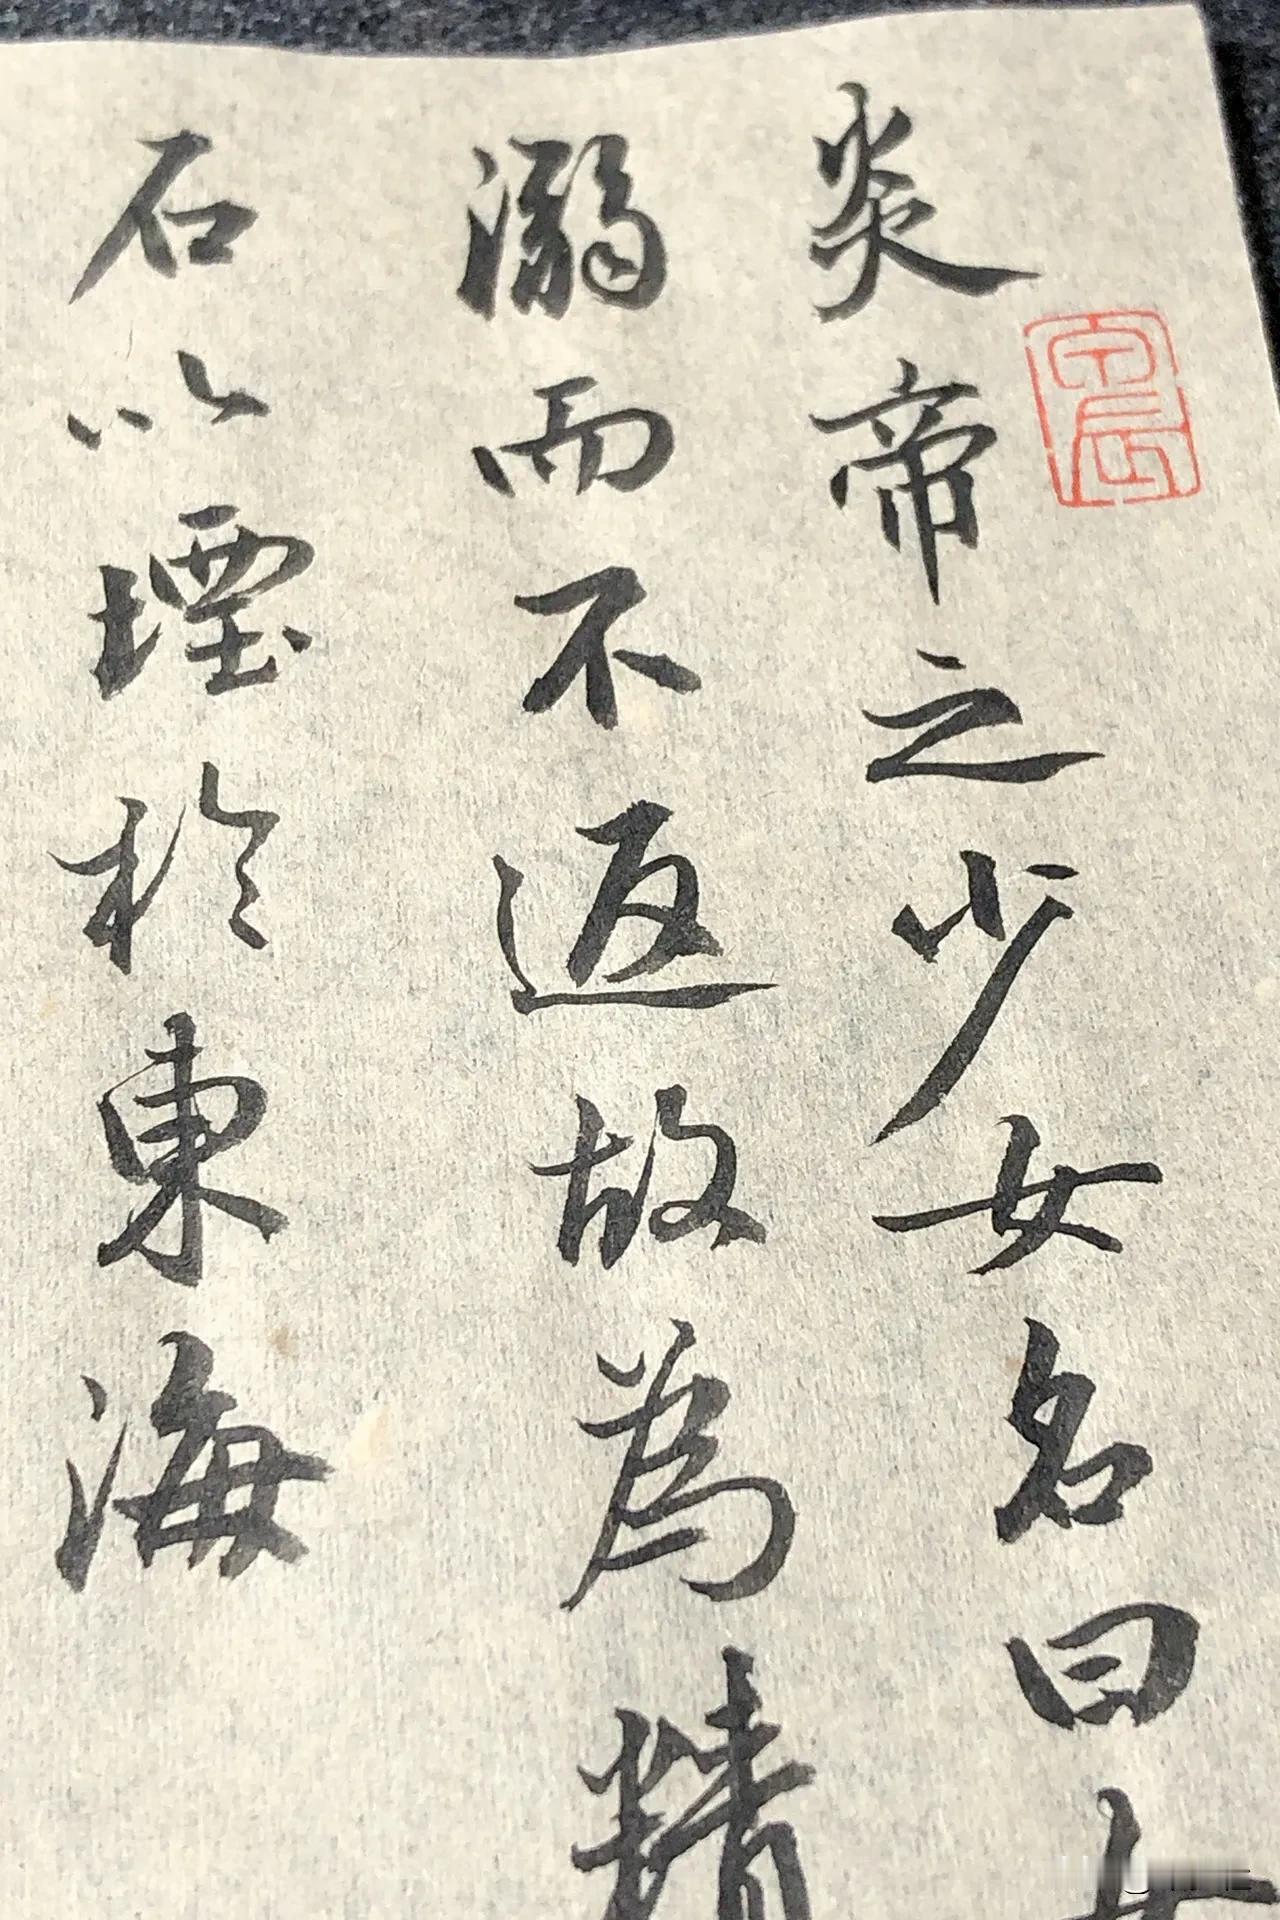 炎帝之少女名曰女
溺而不返故為精
石以堙於東海